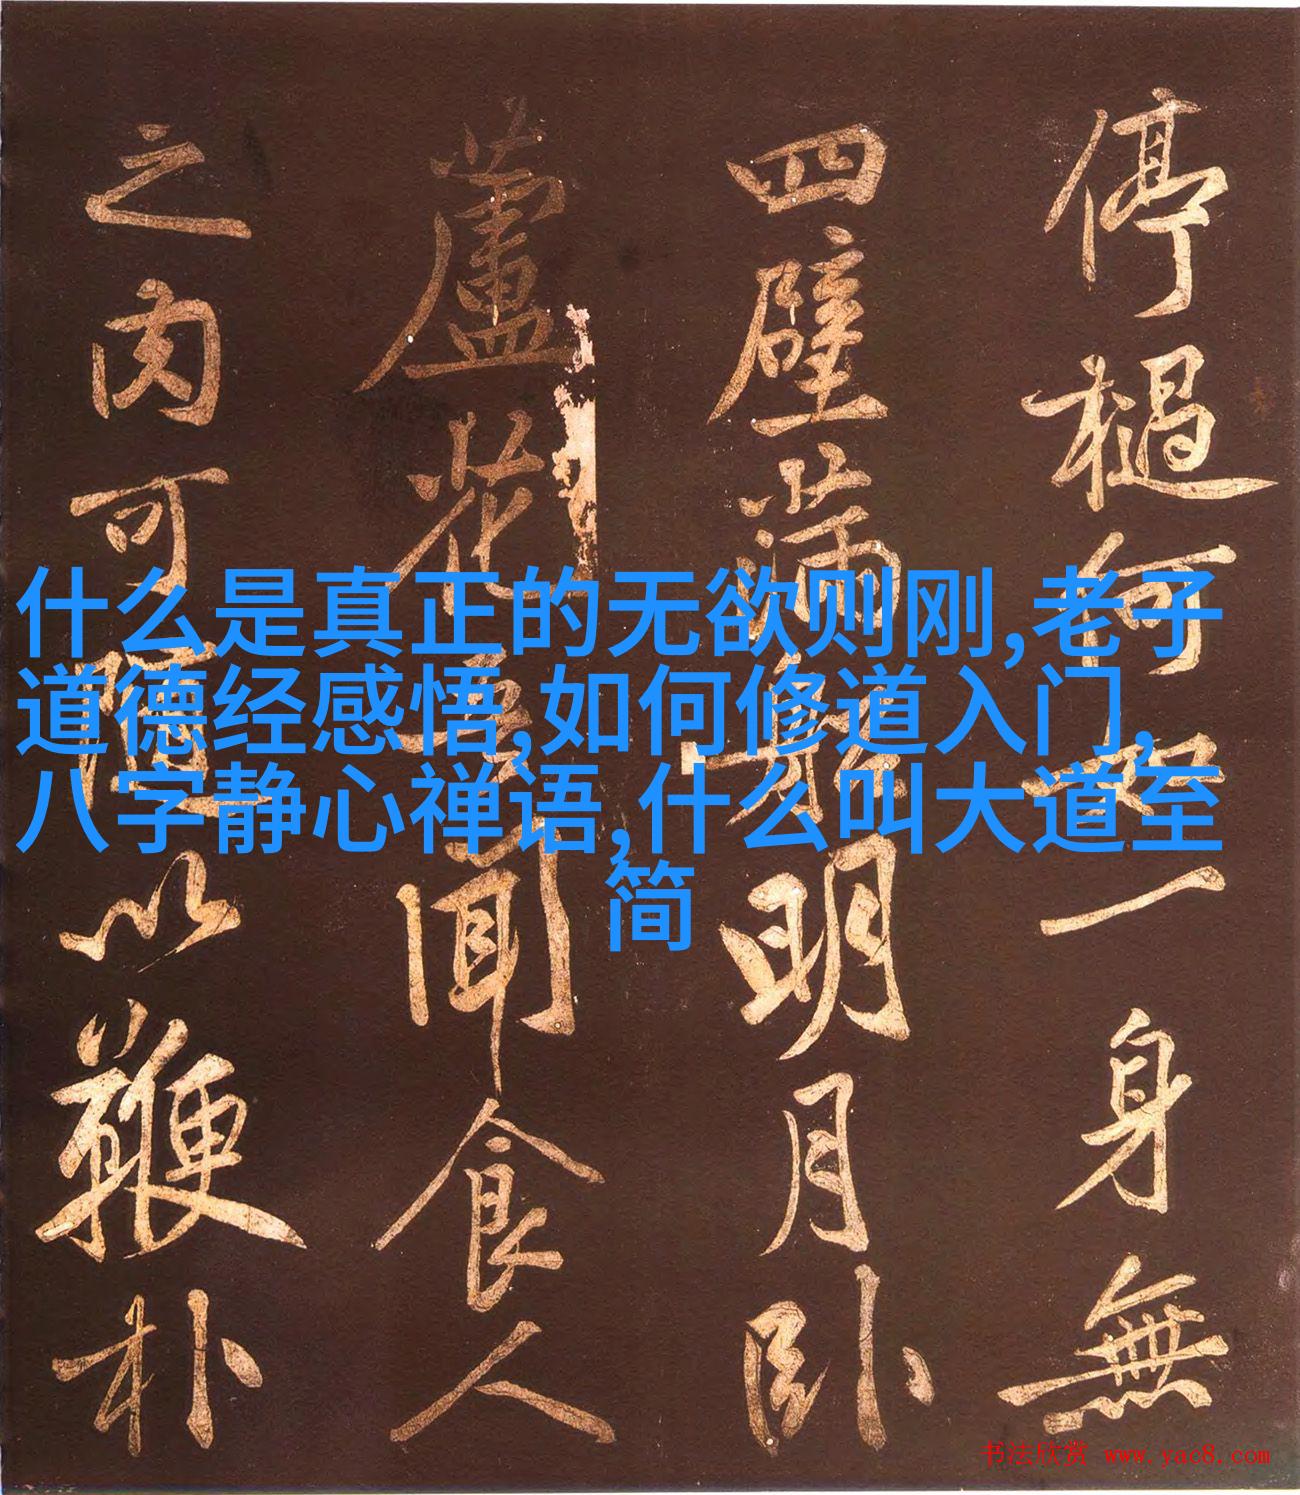 什么是真正的无欲则刚,老子
道德经感悟,如何修道入门,
八字静心禅语,什么叫大道至
简
停檛何如一身無
四壁滿船明月卧
蘆花吾聞食人
之肉可隨以鞭朴
书法欣赏 www.yac8.com